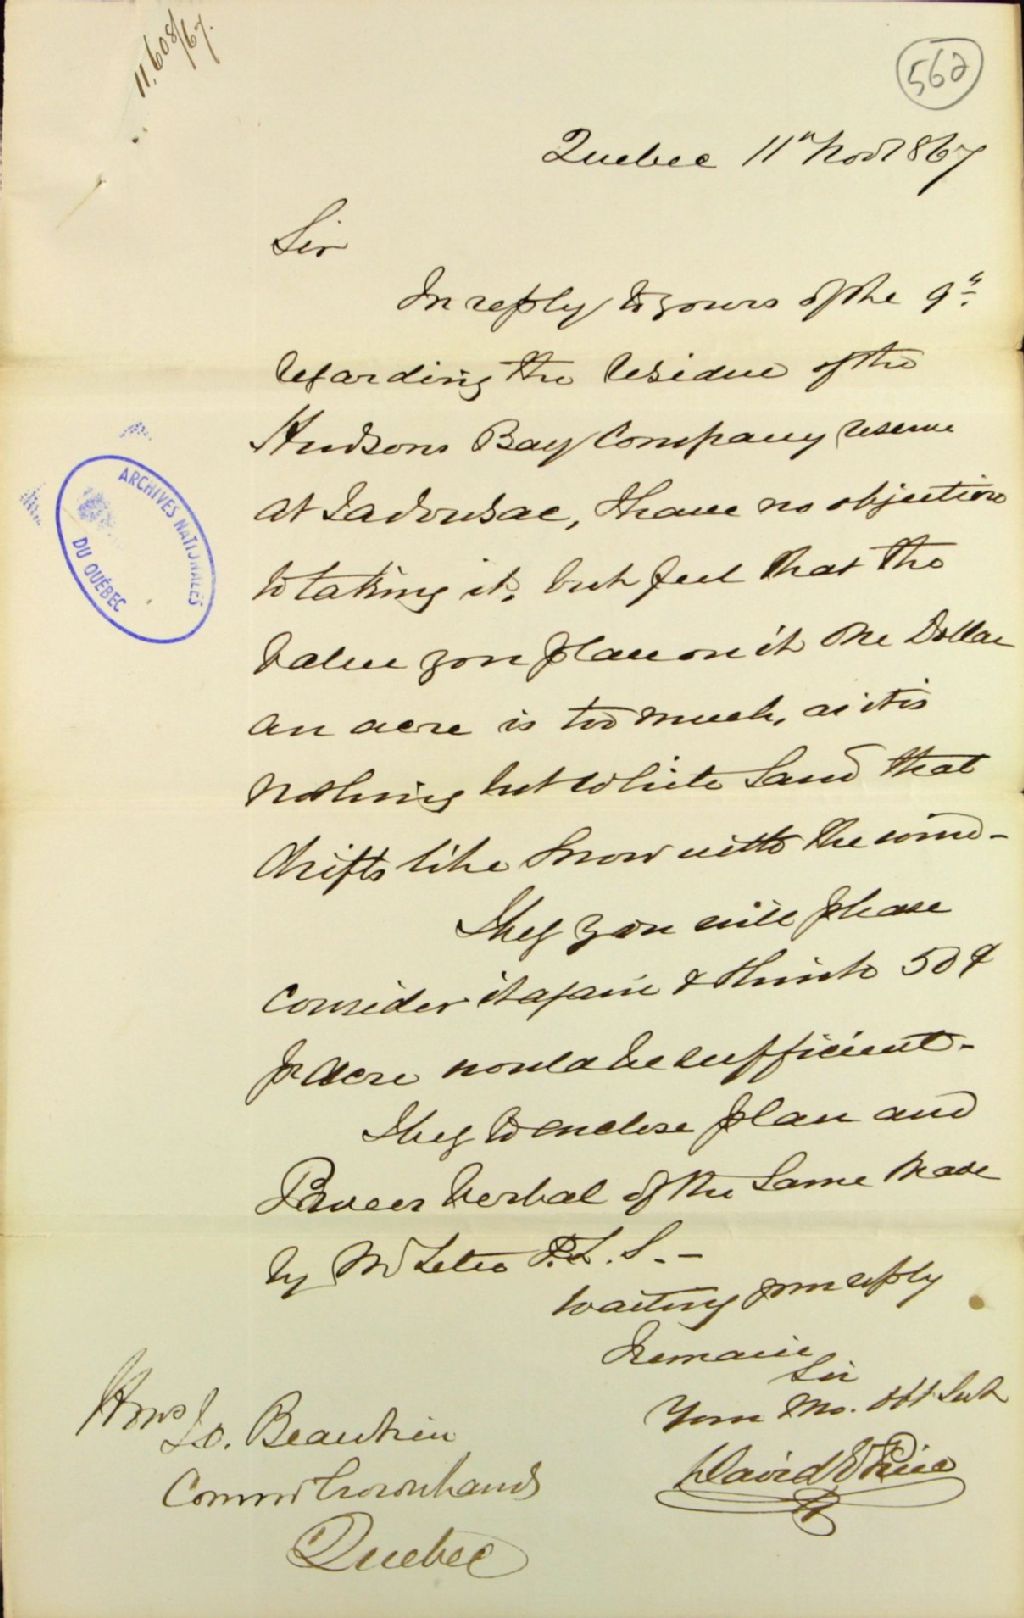 11,608/67.
562
Quebec 11th Nov 1867
Sir
In reply to yours of the 9th
regarding the residue of the
Hudsons Bay Company reserve
at Tadousac, I have no objection
to taking it, but feel that the
value you place on it One Dollar
an acre is too much, as it is
nothing but white Sand that
drifts like Snow with the wind -
I beg you will please
consider it again & think 50¢
pr acre would be sufficient -
I beg to enclose plan and
Proces Verbal of the Same made
by Mr P.L.S. -
Waiting your reply
I remain
Sir
Your Mo. Obt Svt
David E Price
Honble
Beaubien
Commr Crown Lands
Quebec
ARCHIVES NATIONALES
DU QUÉBEC